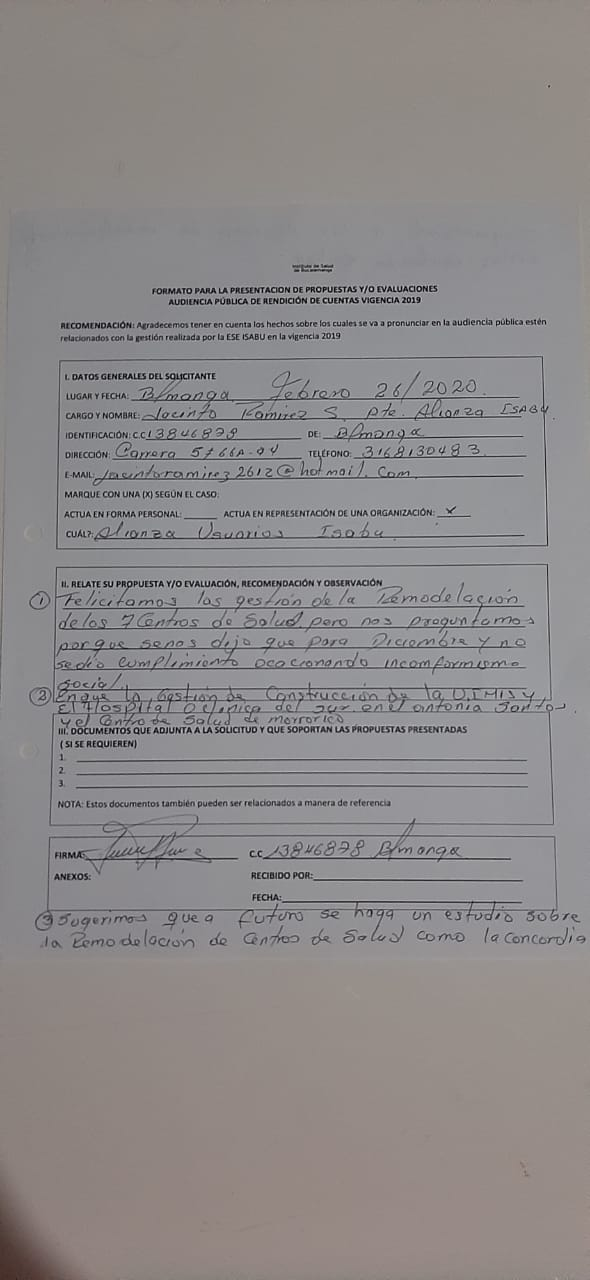 Instituto de Salud
de Bucaramanga
FORMATO PARA LA PRESENTACION DE PROPUESTAS Y/O EVALUACIONES
AUDIENCIA PÚBLICA DE RENDICIÓN DE CUENTAS VIGENCIA 2019
RECOMENDACIÓN: Agradecemos tener en cuenta los hechos sobre los cuales se va a pronunciar en la audiencia pública estén
relacionados con la gestión realizada por la ESE ISABU en la vigencia 2019
I. DATOS GENERALES DEL SOLICITANTE
LUGAR Y FECHA: B/manga Febrero 26/2020
CARGO Y NOMBRE: Jacinto Ramirez S. Pte. Alianza ISABU
IDENTIFICACIÓN: C.C 13846878 DE: B/manga
DIRECCIÓN: Carrera 5# 66A-04 TELÉFONO: 3168130483
E-MAIL: jacintoramirez2612@hotmail.com
MARQUE CON UNA (X) SEGÚN EL CASO:
ACTUA EN FORMA PERSONAL: ACTUA EN REPRESENTACIÓN DE UNA ORGANIZACIÓN: X
CUÁL?: Alianza Usuarios Isabu
II. RELATE SU PROPUESTA Y/O EVALUACIÓN, RECOMENDACIÓN Y OBSERVACIÓN
① Felicitamos las gestión de la Remodelación
de los 7 Centros de Salud pero nos preguntamos
porque senos dijo que para Diciembre y no
se dio cumplimiento ocacionando incomformismo
social.
② En que la Gestión de Construcción de la U.I.MIS y
El Hospital o clinica del sur en el antonia Santos
y el Centro de Salud de morrorico
III. DOCUMENTOS QUE ADJUNTA A LA SOLICITUD Y QUE SOPORTAN LAS PROPUESTAS PRESENTADAS
( SI SE REQUIEREN)
1.
2.
3.
NOTA: Estos documentos también pueden ser relacionados a manera de referencia
FIRMA: CC 13846878 B/manga
ANEXOS: RECIBIDO POR:
FECHA:
③ Sugerimos que a futuro se haga un estudio sobre
la Remodelación de Centros de Salud como la concordia